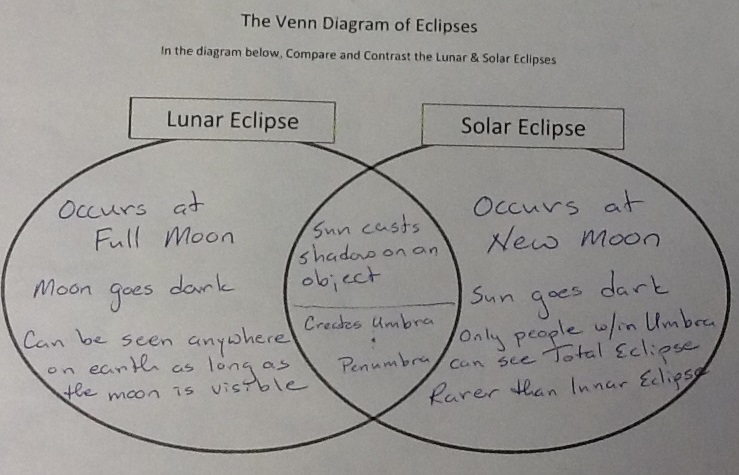 The Venn Diagram of Eclipses
In the diagram below, Compare and Contrast the Lunar & Solar Eclipses
Lunar Eclipse
Occurs at
Full Moon
Moon goes dark
Can be seen anywhere
on earth as long as
the moon is visible
Sun casts
shadow on an
object
Creates Umbra
+
Penumbra
Solar Eclipse
Occurs at
New Moon
Sun goes dark
Only people w/in Umbra
can see Total Eclipse
Rarer than lunar Eclipse